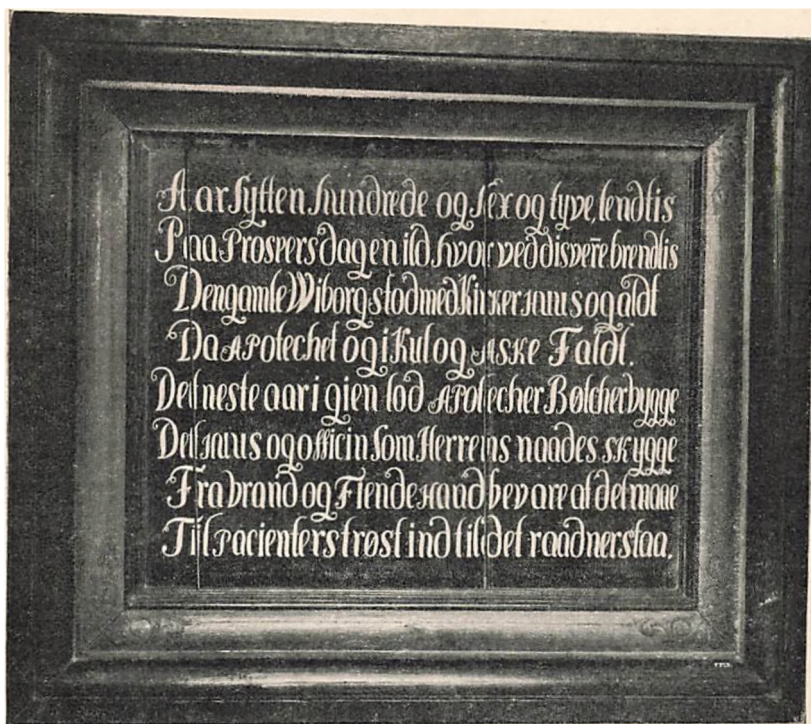 Aar Sytten hundrede og Sex og tyve, tendtis
Paa Prospers dag en ild, hvor ved disverre brendtis
Den gamle Wiborg stod med Kirker huus og aldt
Da Apotechet og i Kul og Aske Faldt.
Det neste aar i gien lod Apotecher Bøtcher bygge
Det huus og officin Som Herrens naades skygge
Fra brand og Fiende Haand bevare at det maae
Til pacienters trøst ind til det raadner staa.